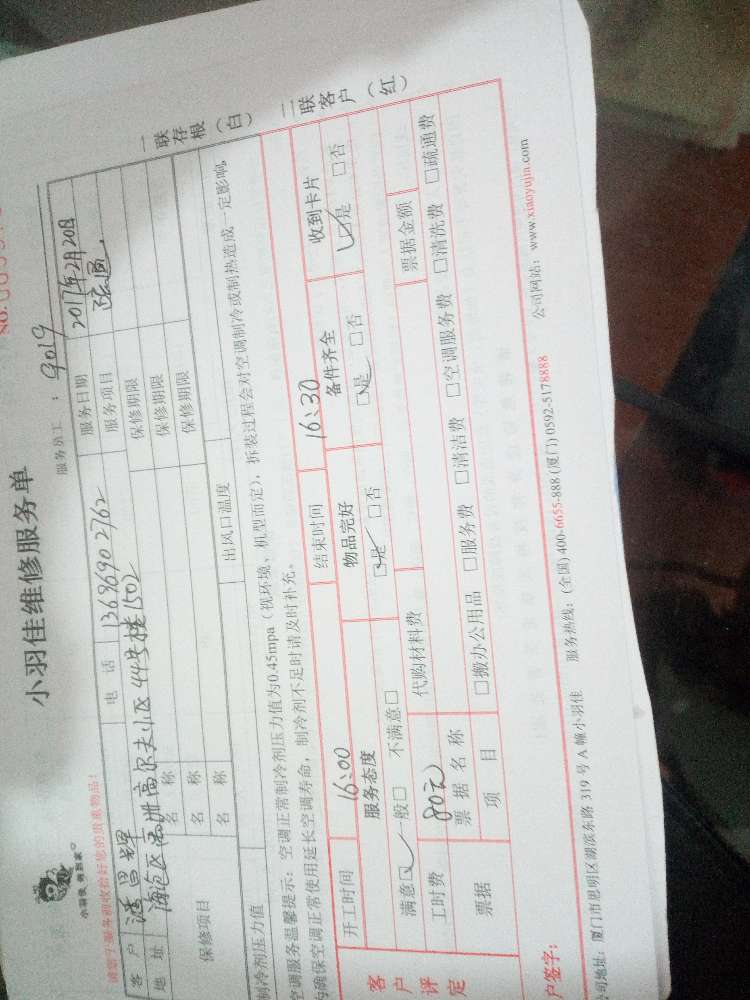 小羽佳维修服务单
服务员工：9019
小羽佳 帮到家
请您于服务前收拾好您的贵重物品！
客户 潘昌辉 电话 13696902762 服务日期 2017年2月20日
地址 海沧区 高尔夫小区44号楼1502 服务项目
保修项目
名称 保修期限
名称 保修期限
名称 保修期限
制冷剂压力值 出风口温度
空调服务温馨提示：空调正常制冷剂压力值为0.45mpa（视环境、机型而定），拆装过程会对空调制冷或制热造成一定影响。
为确保空调正常使用延长空调寿命，制冷剂不足时请及时补充。
一联存根（白）
二联客户（红）
客户评定
开工时间 16:00 结束时间 16:30
服务态度 物品完好 备件齐全 收到卡片
满意☑ 一般□ 不满意□ ☑是 □否 ☑是 □否 ☑是 □否
工时费 80元 代购材料费 票据金额
票据 票据名称
项目 □搬办公用品 □服务费 □清洁费 □空调服务费 □清洗费 □疏通费
户签字：
司地址：厦门市思明区湖滨东路319号A幢小羽佳 服务热线：(全国)400-6655-888 (厦门)0592-5178888 公司网站：www.xiaoyujia.com